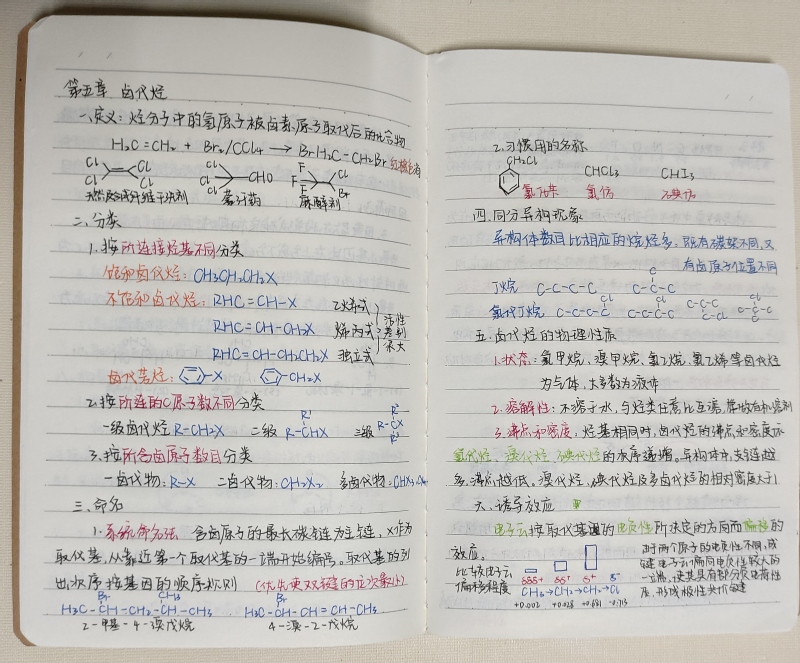 第五章 卤代烃
一、定义：烃分子中的氢原子被卤素原子取代后的化合物
H₂C=CH₂ + Br₂/CCl₄ → BrH₂C-CH₂Br 红棕色消
Cl Cl Cl Cl
Cl Cl Cl CHO
F F F Cl Br
干洗剂 蒙汗药 麻醉剂
二、分类
1.按所连接烃基不同分类
饱和卤代烃：CH₃CH₂CH₂X
不饱和卤代烃：RHC=CH-X 乙烯式
RHC=CH-CH₂X 烯丙式 活性差别很大
RHC=CH-CH₂CH₂X 独立式
卤代芳烃：-X -CH₂X
2.按所连的C原子数不同分类
一级卤代烃 R-CH₂X 二级 R-CHX R' 三级 R-CX R' R''
3.按所含卤原子数目分类
一卤代物：R-X 二卤代物：CH₂X₂ 多卤代物：CHX₃
三、命名
1.系统命名法 含卤原子的最大碳链为主链，X作为
取代基，从靠近第一个取代基的一端开始编号。取代基的列
出次序按基团的顺序规则（优先使双键的位次最小）
Br CH₃ Br
H₃C-CH-CH₂-CH-CH₃ H₃C-CH-CH=CH-CH₃
2-甲基-4-溴戊烷 4-溴-2-戊烷
2.习惯用的名称
CH₂Cl CHCl₃ CHI₃
氯化苄 氯仿 碘仿
四.同分异构现象
异构体数目比相应的烷烃多：既有碳架不同，又
有卤原子位置不同
丁烷 C-C-C-C C-C-C C
氯代丁烷 C-C-C-C Cl C-C-C-C Cl C-C-C C-Cl C-C-C Cl C
五.卤代烃的物理性质
1.状态：氯甲烷、溴甲烷、氯乙烷、氯乙烯等卤代烃
为气体，大多数为液体
2.溶解性：不溶于水，与烃类任意比互溶，有机溶剂
3.沸点和密度，烃基相同时，卤代烃的沸点和密度以
氯代烃、溴代烃、碘代烃的次序递增。异构体中，支链越
多，沸点越低，溴代烃、碘代烃及多卤代烃的相对密度大于1
六、诱导效应
电子云按取代基团的电负性所决定的方向而偏移的
效应。
比较电子云偏移程度
δδδ+ δδ+ δ+ δ-
CH₃→CH₂→CH₂→Cl
+0.002 +0.028 +0.681 -0.713
由于两个原子的电负性不同，成
键电子云偏向电负性较大的
一端，使其具有部分负电荷性
质，形成极性共价键